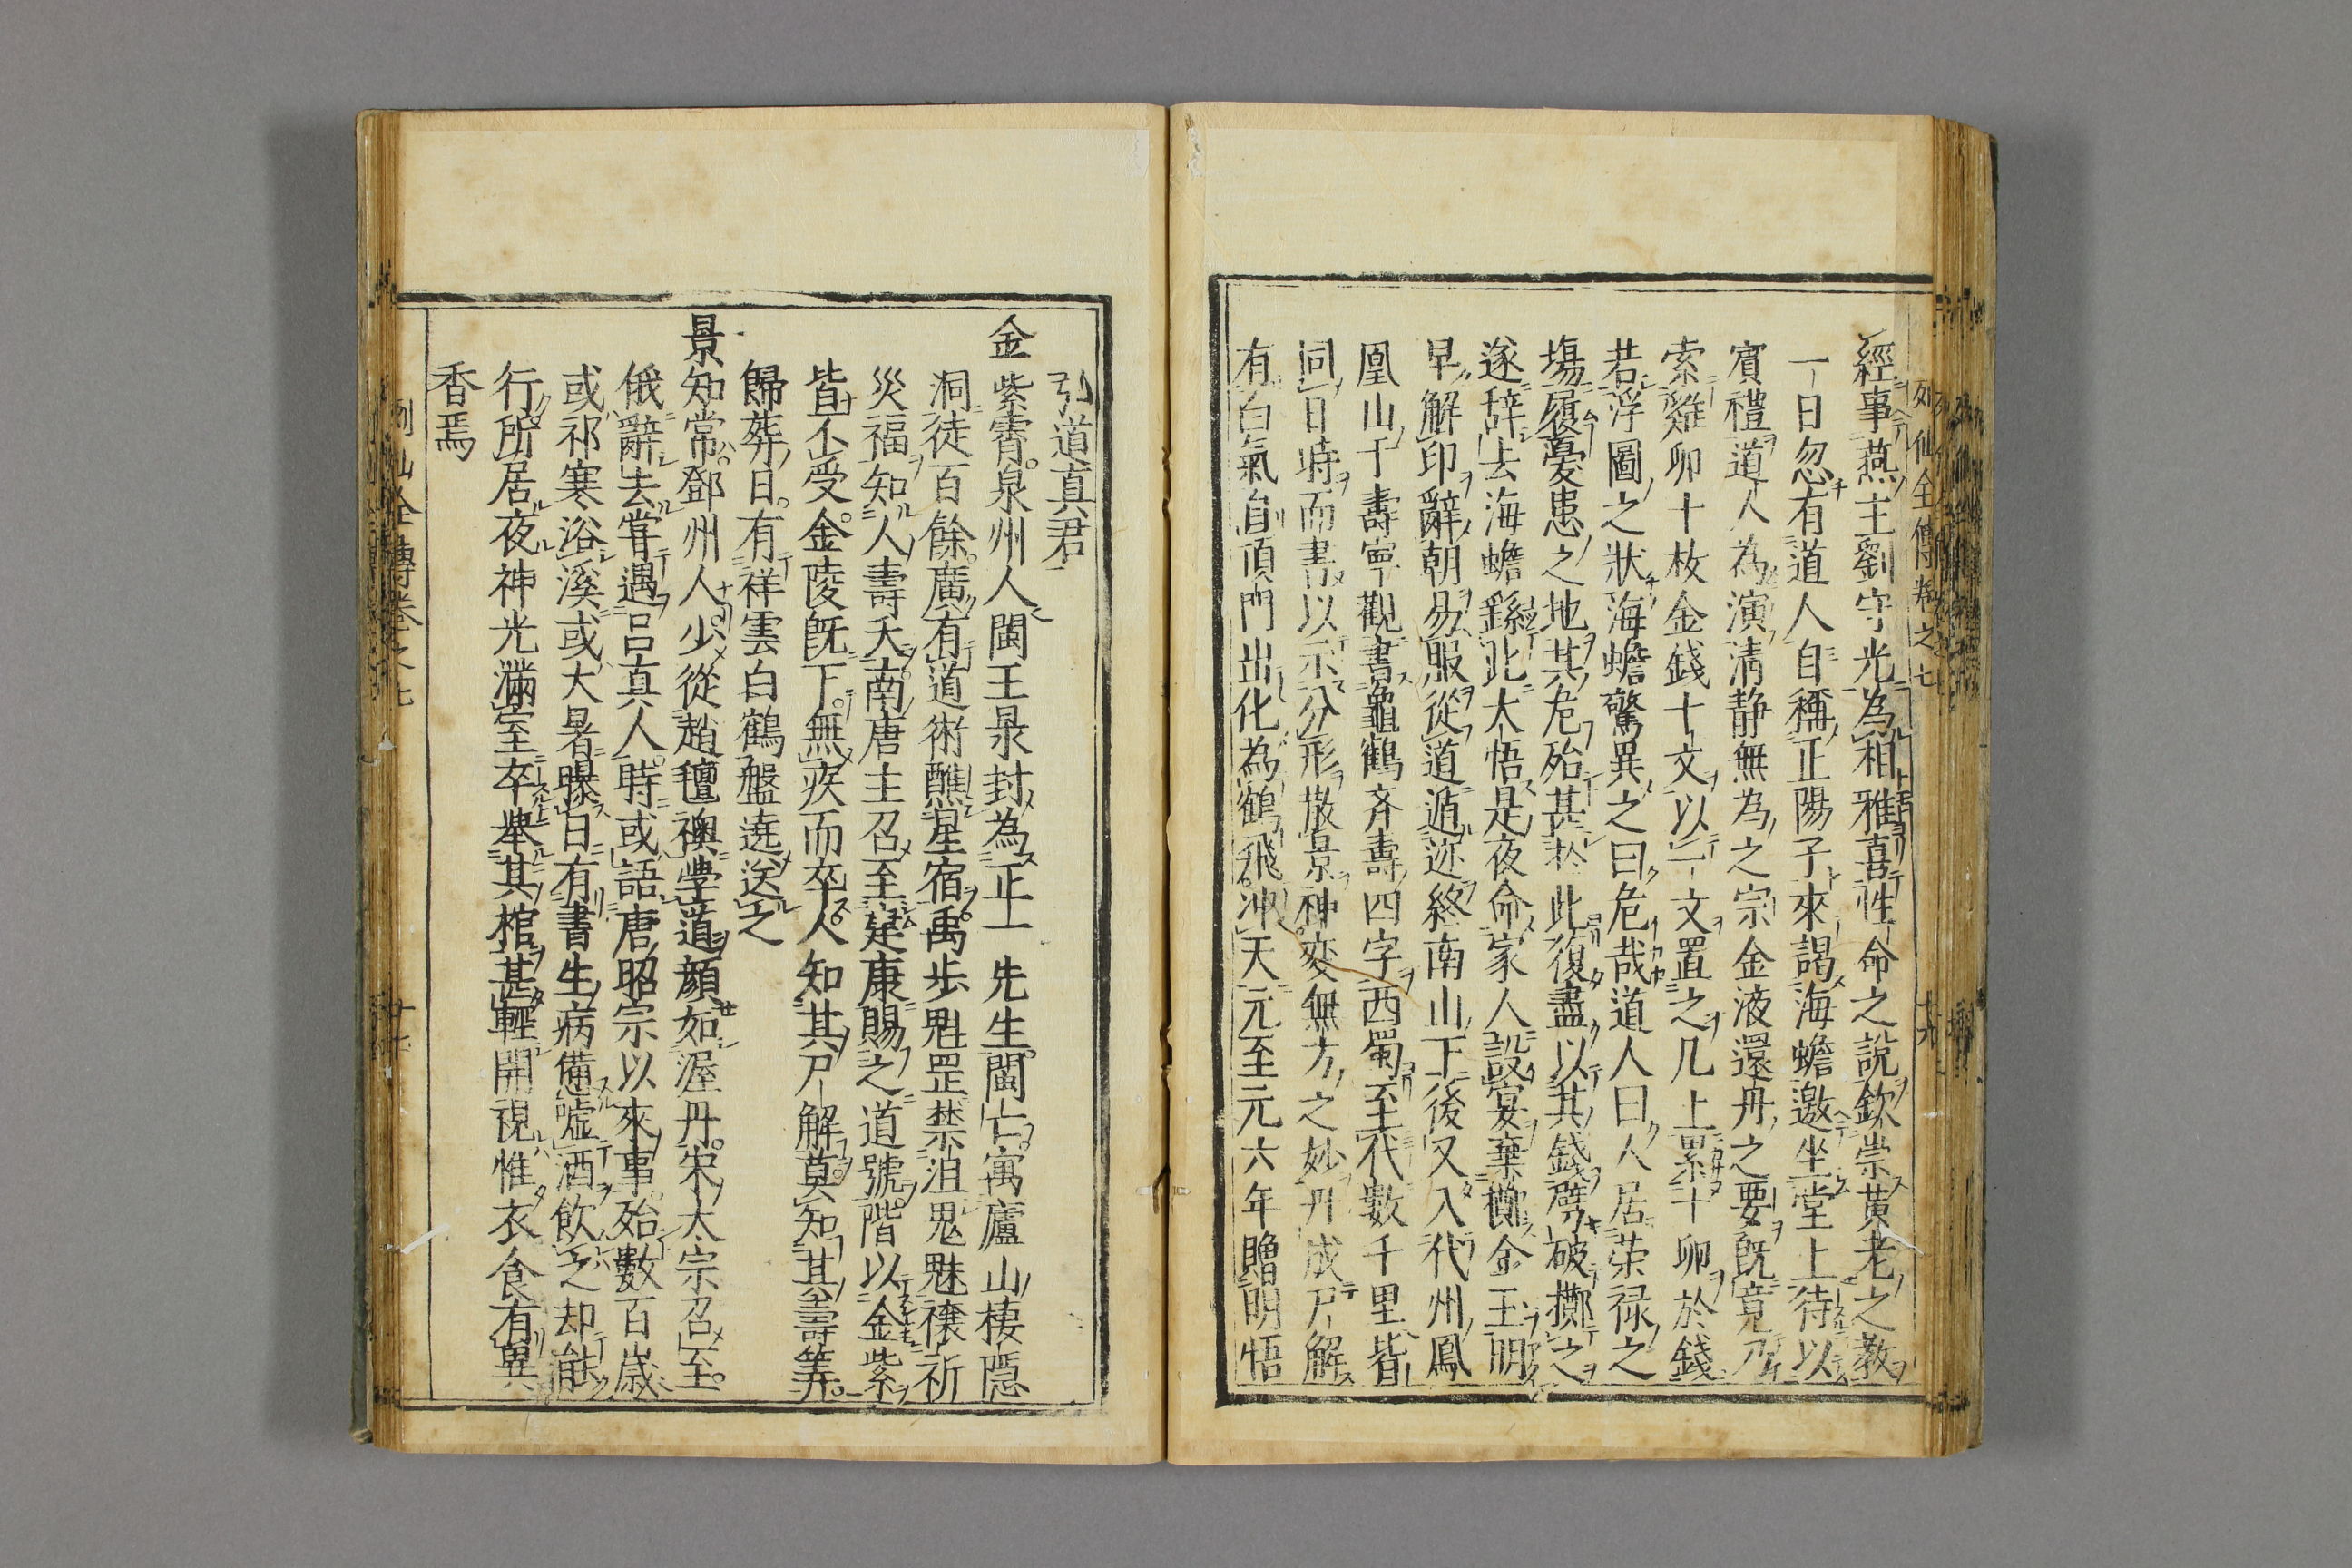 經事燕主劉守光為相雅喜性命之說欽崇黃老之教
一日忽有道人自稱正陽子來謁海蟾邀坐堂上待以
賓禮道人為演清靜無為之宗金液還丹之要既竟乃
索雞卵十枚金錢十文以一文置之几上累十卵於錢
若浮圖之狀海蟾驚異之曰危哉道人曰人居荣禄之
塲履憂患之地其危殆甚於此復盡以其錢劈破擲之
遂辞去海蟾繇此大悟是夜命家人設宴棄擲金玉明
早解印辭朝易服從道遁迹終南山下後又入代州鳳
凰山于壽寧觀書龜鶴齊壽四字西蜀至代數千里皆
同日時而書以示分形散景神変無方之妙丹成尸解
有白氣自頂門出化為鶴飛冲天元至元六年贈明悟
弘道真君
金紫霄泉州人閩王㫤封為正一先生閩亡寓廬山棲隱
洞徒百餘廣有道術醮星宿禹步魁罡禁沮鬼魅禳祈
災福知人壽夭南唐主召至建康賜之道號階以金紫
皆不受金陵既下無疾而卒人知其尸解莫知其壽筭
歸葬日有祥雲白鶴盤遶送之
景知常鄧州人少從趙氊襖學道顏如渥丹宋太宗召至
俄辭去甞遇呂真人時或語唐昭宗以來事殆數百歲
或祁寒浴溪或大暑曝日有書生病憊噓酒飲之却能
行所居夜神光滿室卒舉其棺甚輕開視惟衣食有異
香焉
列仙全傳卷之七
十九
列仙全傳卷之七